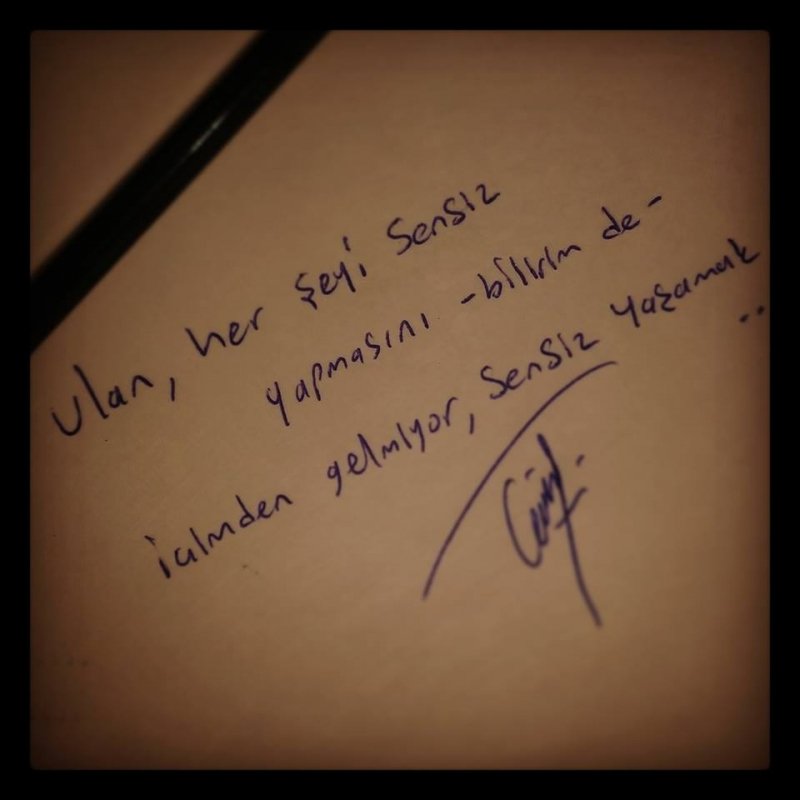 Ulan, her şeyi sensiz
yapmasını -bilirim de-
içimden gelmiyor, sensiz yaşamak
..